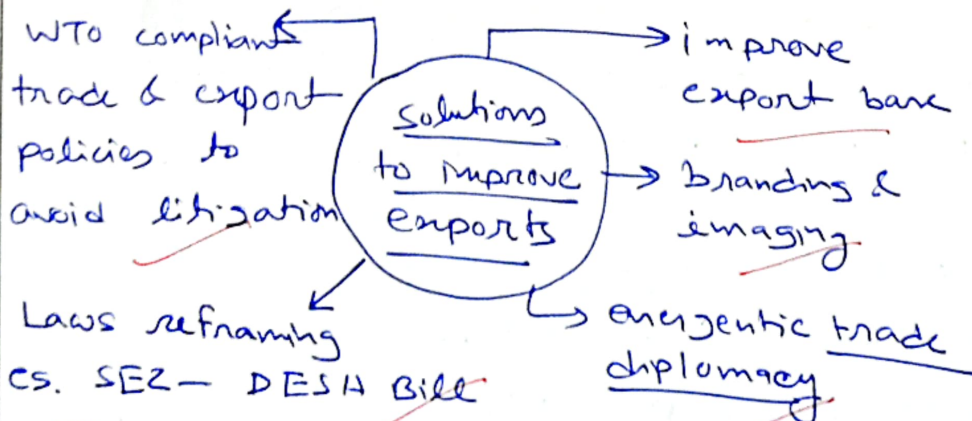 WTO compliant
trade & export
policies to
avoid litigation
solutions
to improve
exports
improve
export base
branding &
imaging
energentic trade
diplomacy
Laws reframing
eg. SEZ- DESH Bill